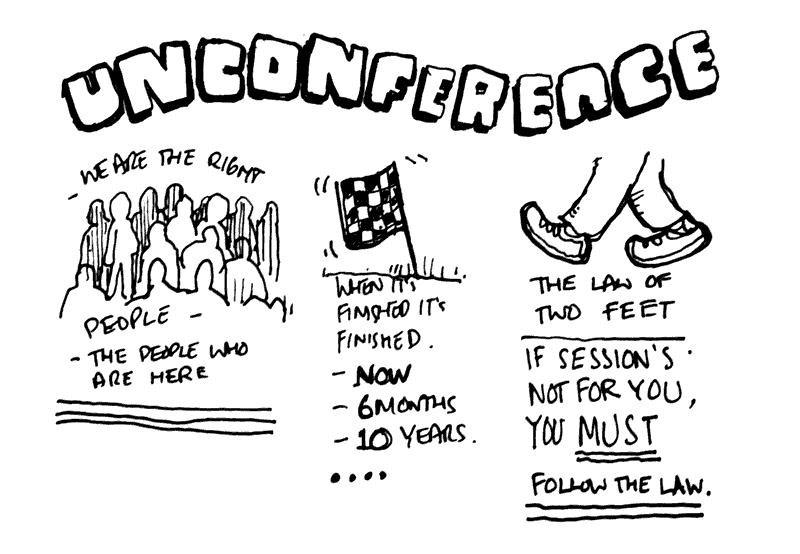 UNCONFERENCE
- WE ARE THE RIGHT
PEOPLE -
- THE PEOPLE WHO
ARE HERE
WHEN IT'S
FINISHED IT'S
FINISHED.
- NOW
- 6 MONTHS
- 10 YEARS.
....
THE LAW OF
TWO FEET
IF SESSION'S
NOT FOR YOU,
YOU MUST
FOLLOW THE LAW.